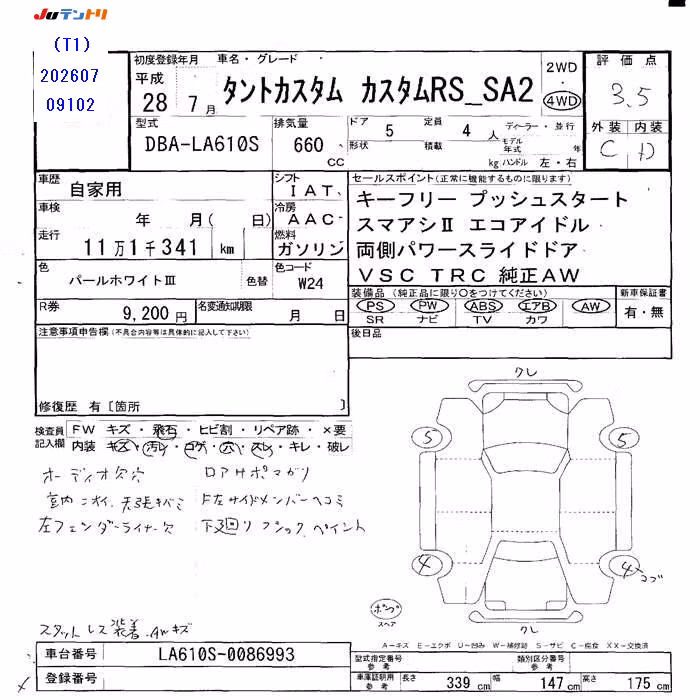 JUテントリ
(T1)
202607
09102
初度登録年月 車名・グレード
平成
28 7月
タントカスタム カスタムRS_SA2
2WD
・
4WD
評価点
3.5
外装 内装
C D
型式
DBA-LA610S
排気量
660 CC
ドア 5 定員 4人 ディーラー・並行
形状 積載 kg モデル年式 年
ハンドル 左・右
車歴
自家用
シフト
IAT
車検
年 月( 日)
冷房
AAC
走行
11万1千341 km
燃料
ガソリン
色
パールホワイトⅢ 色替
色コード
W24
R券
9,200円
名変通知期限
月 日
セールスポイント(正常に機能するものに限ります)
キーフリー プッシュスタート
スマアシⅡ エコアイドル
両側パワースライドドア
VSC TRC 純正AW
装備品(純正品に限り○をつけてください)
PS PW ABS エアB AW
SR ナビ TV カワ
新車保証書
有・無
後日品
注意事項申告欄(不具合内容等は具体的に記入して下さい)
修復歴 有〔箇所 〕
検査員記入欄
FW キズ・飛石・ヒビ割・リペア跡・×要
内装 キズ・汚レ・コゲ・穴・スレ・キレ・破レ
オーディオ欠穴 ロアサポマガリ
室内ニオイ
左フェンダーライナー欠 下廻りフラック、ペイント
スタットレス装着 AWキズ
クレ
5 5
4 4 コブ
クレ
スペア
A-キズ E-エクボ U-凹み W-補修跡 S-サビ C-腐食 XX-交換済
車台番号 LA610S-0086993
登録番号
型式指定番号
参考
類別区分番号
参考
車庫証明用
参考
長さ 339 cm 幅 147 cm 高さ 175 cm